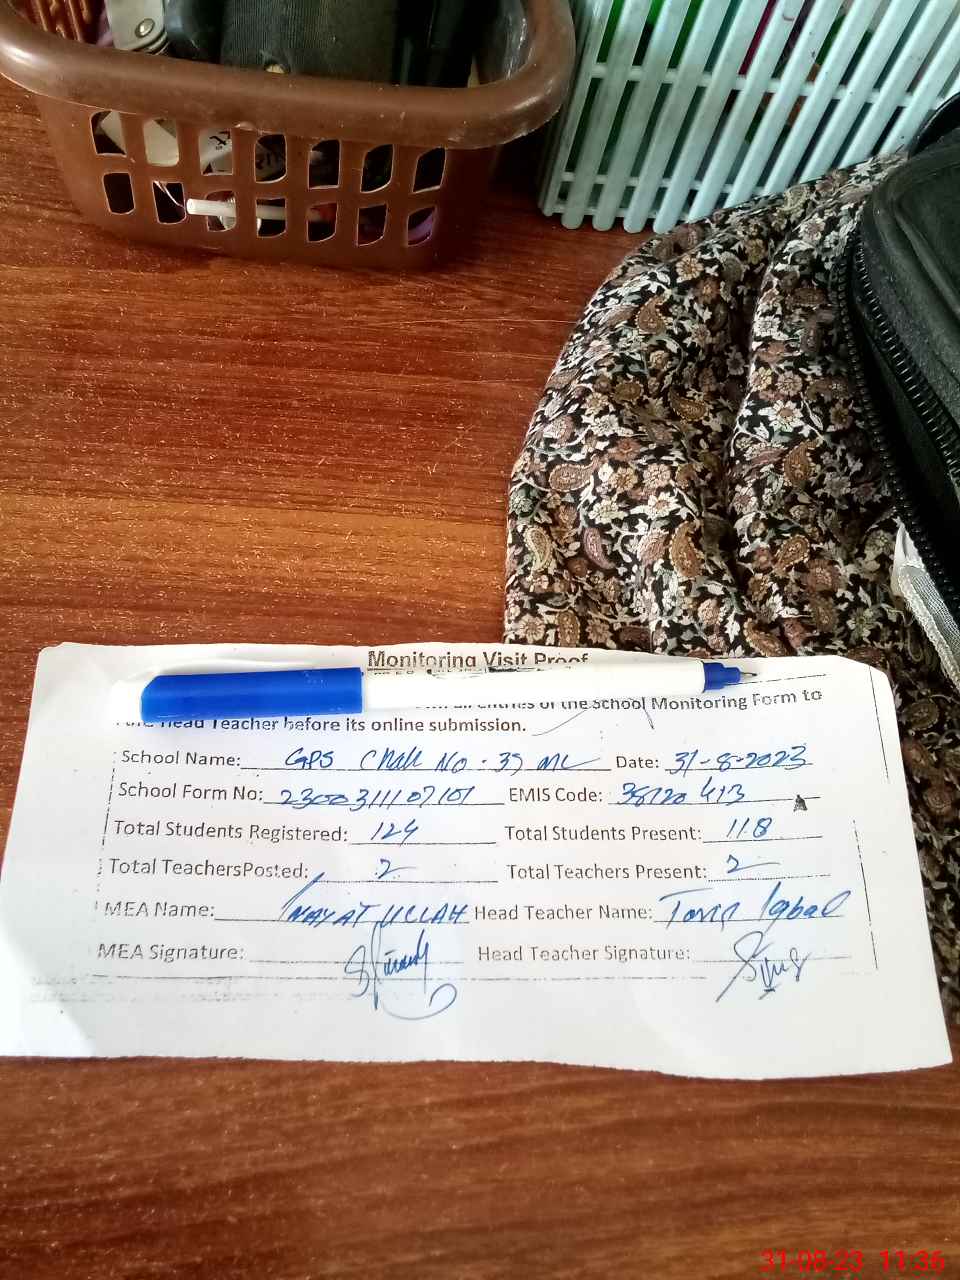 Monitoring Visit Proof
entries of the School Monitoring Form to
the Head Teacher before its online submission.
School Name: GPS Chak No. 39 ML Date: 31-8-2023
School Form No: 2300311107101 EMIS Code: 38120413
Total Students Registered: 124 Total Students Present: 118
Total TeachersPosted: 2 Total Teachers Present: 2
MEA Name: INAYAT ULLAH Head Teacher Name: Tariq Iqbal
MEA Signature: Head Teacher Signature:
31-08-23 11:36